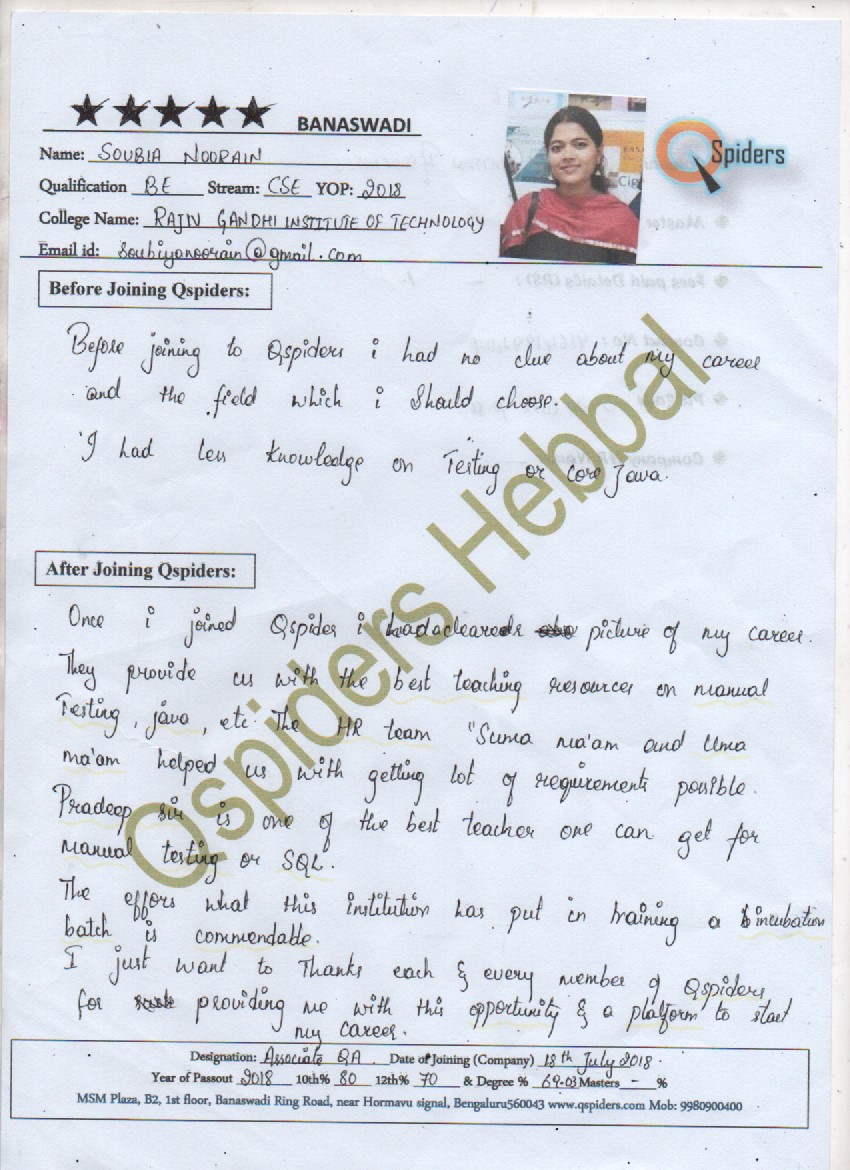 BANASWADI
Name: SOUBIA NOORAIN
Qualification BE Stream: CSE YOP: 2018
College Name: RAJIV GANDHI INSTITUTE OF TECHNOLOGY
Email id: soubiyanoorain@gmail.com
QSpiders
Before Joining Qspiders:
Before joining to Qspiders i had no clue about my career
and the field which i should choose.
I had less knowledge on Testing or core Java.
Qspiders Hebbal
After Joining Qspiders:
Once i joined Qspider i picture of my career.
They provide us with the best teaching resources on manual
Testing, java, etc. The HR team "Suma ma'am and Uma
ma'am helped us with getting lot of requirements possible.
Pradeep sir is one of the best teacher one can get for
manual testing or SQL.
The effors what this institution has put in training a incubation
batch is commendable.
I just want to Thanks each & every member of Qspiders
for providing me with this opportunity & a platform to start
my career.
Designation: Associate QA Date of Joining (Company) 18th July 2018.
Year of Passout 2018 10th% 80 12th% 70 & Degree % 69.03 Masters - %
MSM Plaza, B2, 1st floor, Banaswadi Ring Road, near Hormavu signal, Bengaluru560043 www.qspiders.com Mob: 9980900400